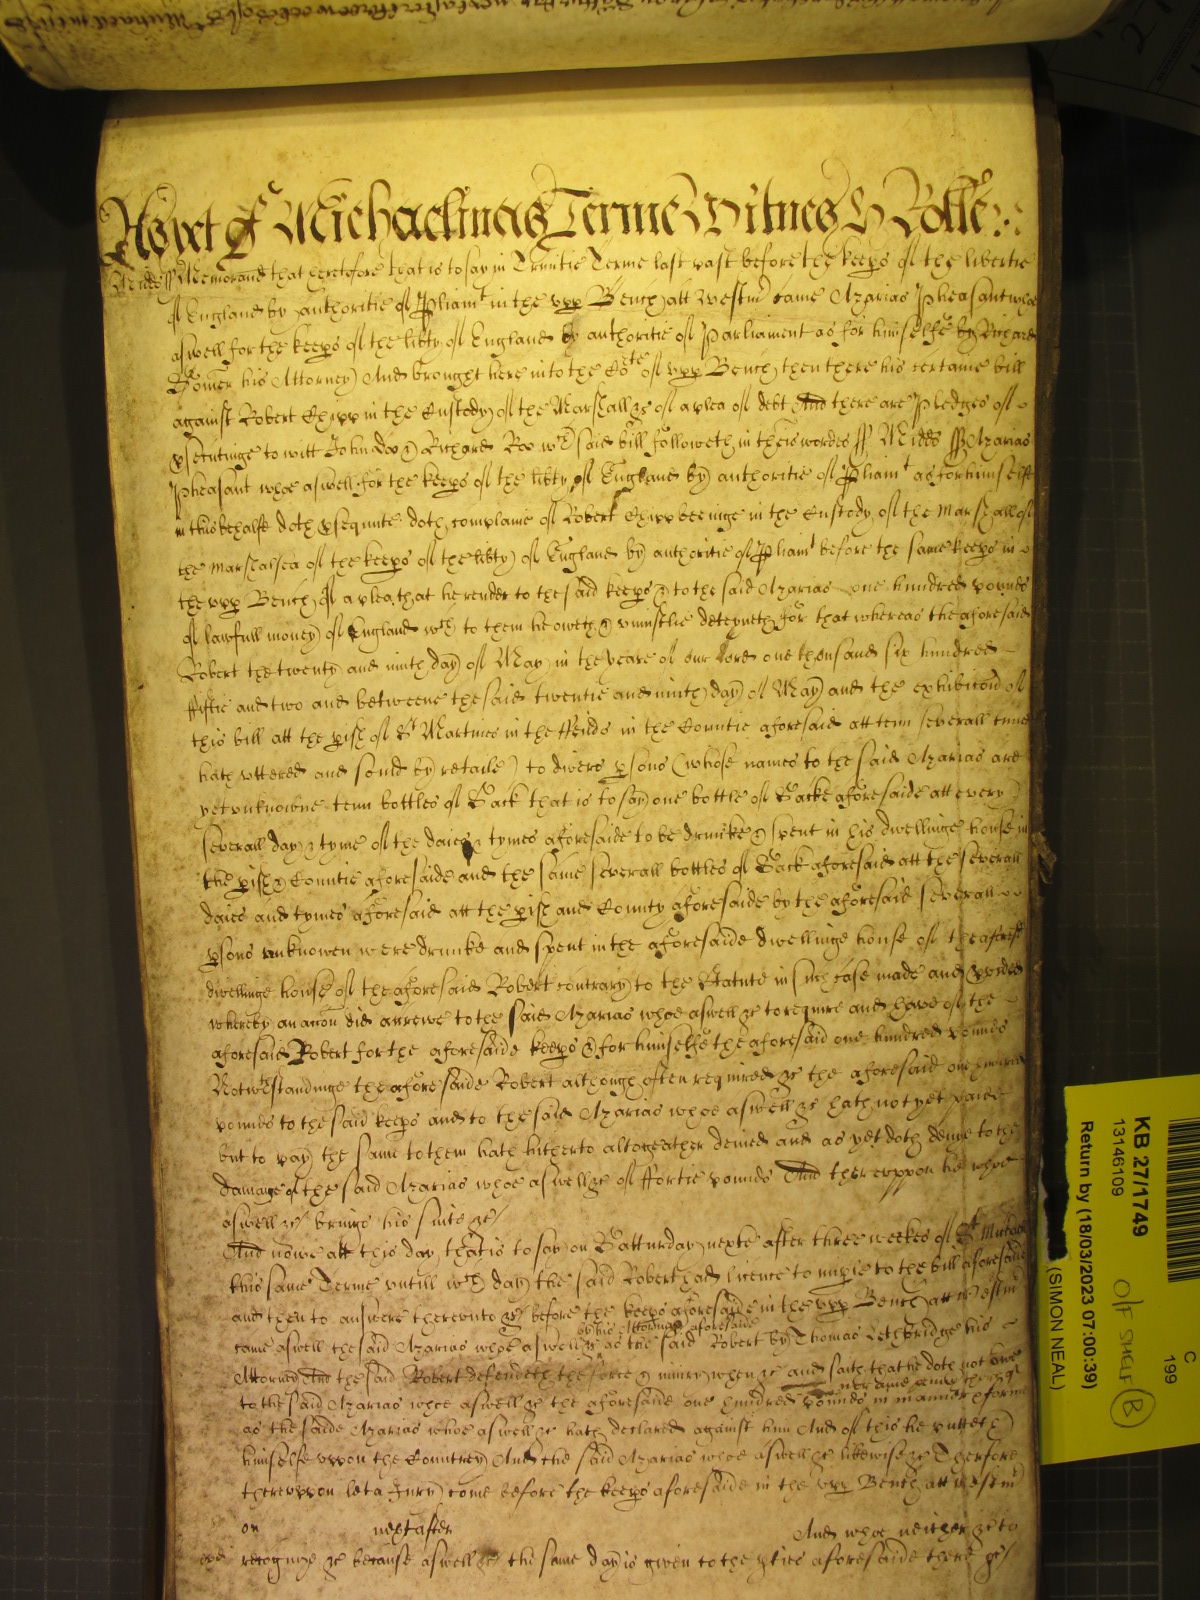 As yet of Michaelmas Terme Witnes H Rolle
Midds ss Memorand that heretofore that is to say in Trinitie Terme last past before the keeps of the libertie
of England by authoritie of Pliamt in the upp Bench att Westm came Azarias Pheasant whoe
aswell for the keeps of the libty of England by authoritie of Parliament as for himselfe by Richard
his Attorney And brought here into the Cote of upp Bench then there his certaine bill
against Robert Chipp in the Custody of the Marshall &c of a plea of debt And there are Pledges of
psecutinge to witt John Doo & Richard Roo wch said bill followeth in theis wordes ss Midds ss Azarias
Pheasant whoe aswell for the keeps of the libty of England by authoritie of Pliamt as for himselfe
in this behalfe doth psequute doth complaine of Robert Chipp beeinge in the Custody of the Marshall of
the Marshalsea of the keeps of the libty of England by authoritie of Pliamt before the same keeps in
the upp Bench Of a plea that he render to the said keeps & to the said Azarias one hundred pounds
of lawfull money of England wch to them he oweth & uniustlie deteyneth for that whereas the aforesaid
Robert the twenty and ninth day of May in the yeare of our Lord one thousand six hundred
fiftie and two and betweene the said twentie and ninth day of May and the exhibicon of
this bill att the pish of St Martines in the ffeilds in the Countie aforesaid att tenn severall times
hath uttered and sould by retaile to divers psons (whose names to the said Azarias are
yet unknowne tenn bottles of Sack that is to say one bottle of Sacke aforesaide att every
severall day & tyme of the daies & tymes aforesaide to be drunke & spent in his dwellinge house in
the pish & Countie aforesaide and the same severall bottles of Sack aforesaid att the severall
daies and tymes aforesaid att the pish and County aforesaide by the aforesaid severall
psons unknowen were drunke and spent in the aforesaide dwellinge house of the aforesd
dwellinge house of the aforesaid Robert contrary to the Statute in such case made and pvided
whereby an accon did accrewe to the said Azarias whoe aswell &c to require and have of the
aforesaid Robert for the aforesaide keeps & for himselfe the aforesaid one hundred pounds
Notwthstandinge the aforesaide Robert although often required &c the aforesaid one hundred
pounds to the said keeps and to the said Azarias whoe aswell &c hath not yet paied
but to pay the same to them hath hitherto altogeather denied and as yet doth denie to the
damage of the said Azarias whoe aswell &c of ffortie pounds And thereuppon hee whoe
aswell &c bringe his suite &c
And nowe att this day that is to say on Satturday nexte after three weekes of St Michaell
this same Terme untill wch day the said Robert had licence to imple to the bill aforesaide
and then to answere thereunto &c before the keeps aforesaide in the upp Bench att Westm
came aswell the said Azarias whoe aswell &c by his Attorney aforesaide as the said Robert by Thomas Lethbridge his
Attorney And the said Robert defendeth the force & iniury when &c and saith that he doth not owe
to the said Azarias whoe aswell &c the aforesaid one hundred pounds in manner & forme
as the saide Azarias whoe aswell &c hath declared against him And of this he putteth
himselfe uppon the Countrey And the said Azarias whoe aswell &c likewise &c Therfore
thereuppon let a Jury come before the keeps aforesaide in the upp Bench att Westm
on next after And whoe neither &c to
recognize &c because aswell &c the same day is given to the pties aforesaide there &c
KB 27/1749
13146109
Return by (18/03/2023 07:00:39)
(SIMON NEAL)
O/F SHELF B
C
199